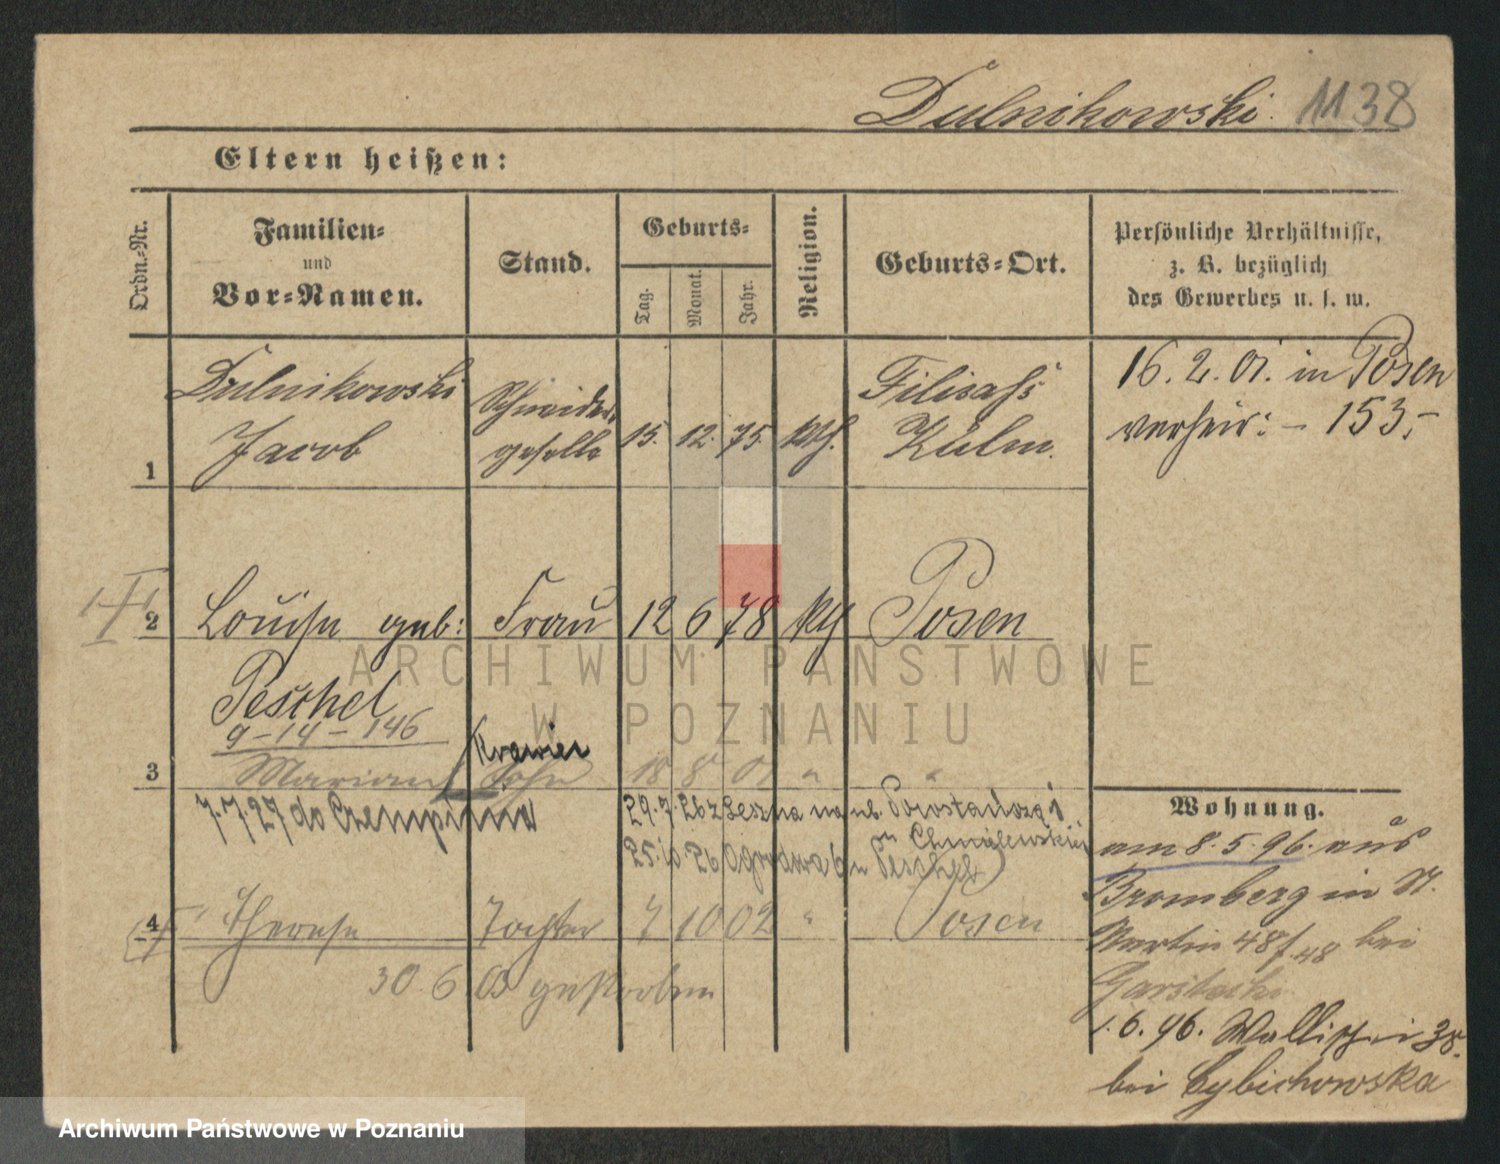 Dulnikowski. 1138
Eltern heißen:
Ordn.-Nr.
Familien-
und
Vor-Namen.
Stand.
Geburts-
Tag.
Monat.
Jahr.
Religion.
Geburts-Ort.
Persönliche Verhältnisse,
z. B. bezüglich
des Gewerbes u. s. w.
1
Dulnikowski
Jacob
Schneider-
geselle
15. 12. 75. kth.
Kulm.
16. 2. 01. in Posen
verheir: – 153,-
2
Louise geb: Frau 12 6 78 kth Posen
Peschel
9-14-146
3
Marian Sohn 18 8 01 "
Krawiec
7.7.27 do Czempinia
29.7.26 z Leszna na ul.
u Chmielewskiej
25.10.26 Ogrodowa 6 u Peschel
4
Therese Tochter 7 10 02 " Posen
30. 6. 03 gestorben
Wohnung.
am 8. 5. 96. aus
Bromberg in St.
Martin 48 bei
1. 6. 96. Wallischei 38.
bei Cybichowska
ARCHIWUM PAŃSTWOWE
W POZNANIU
Archiwum Państwowe w Poznaniu